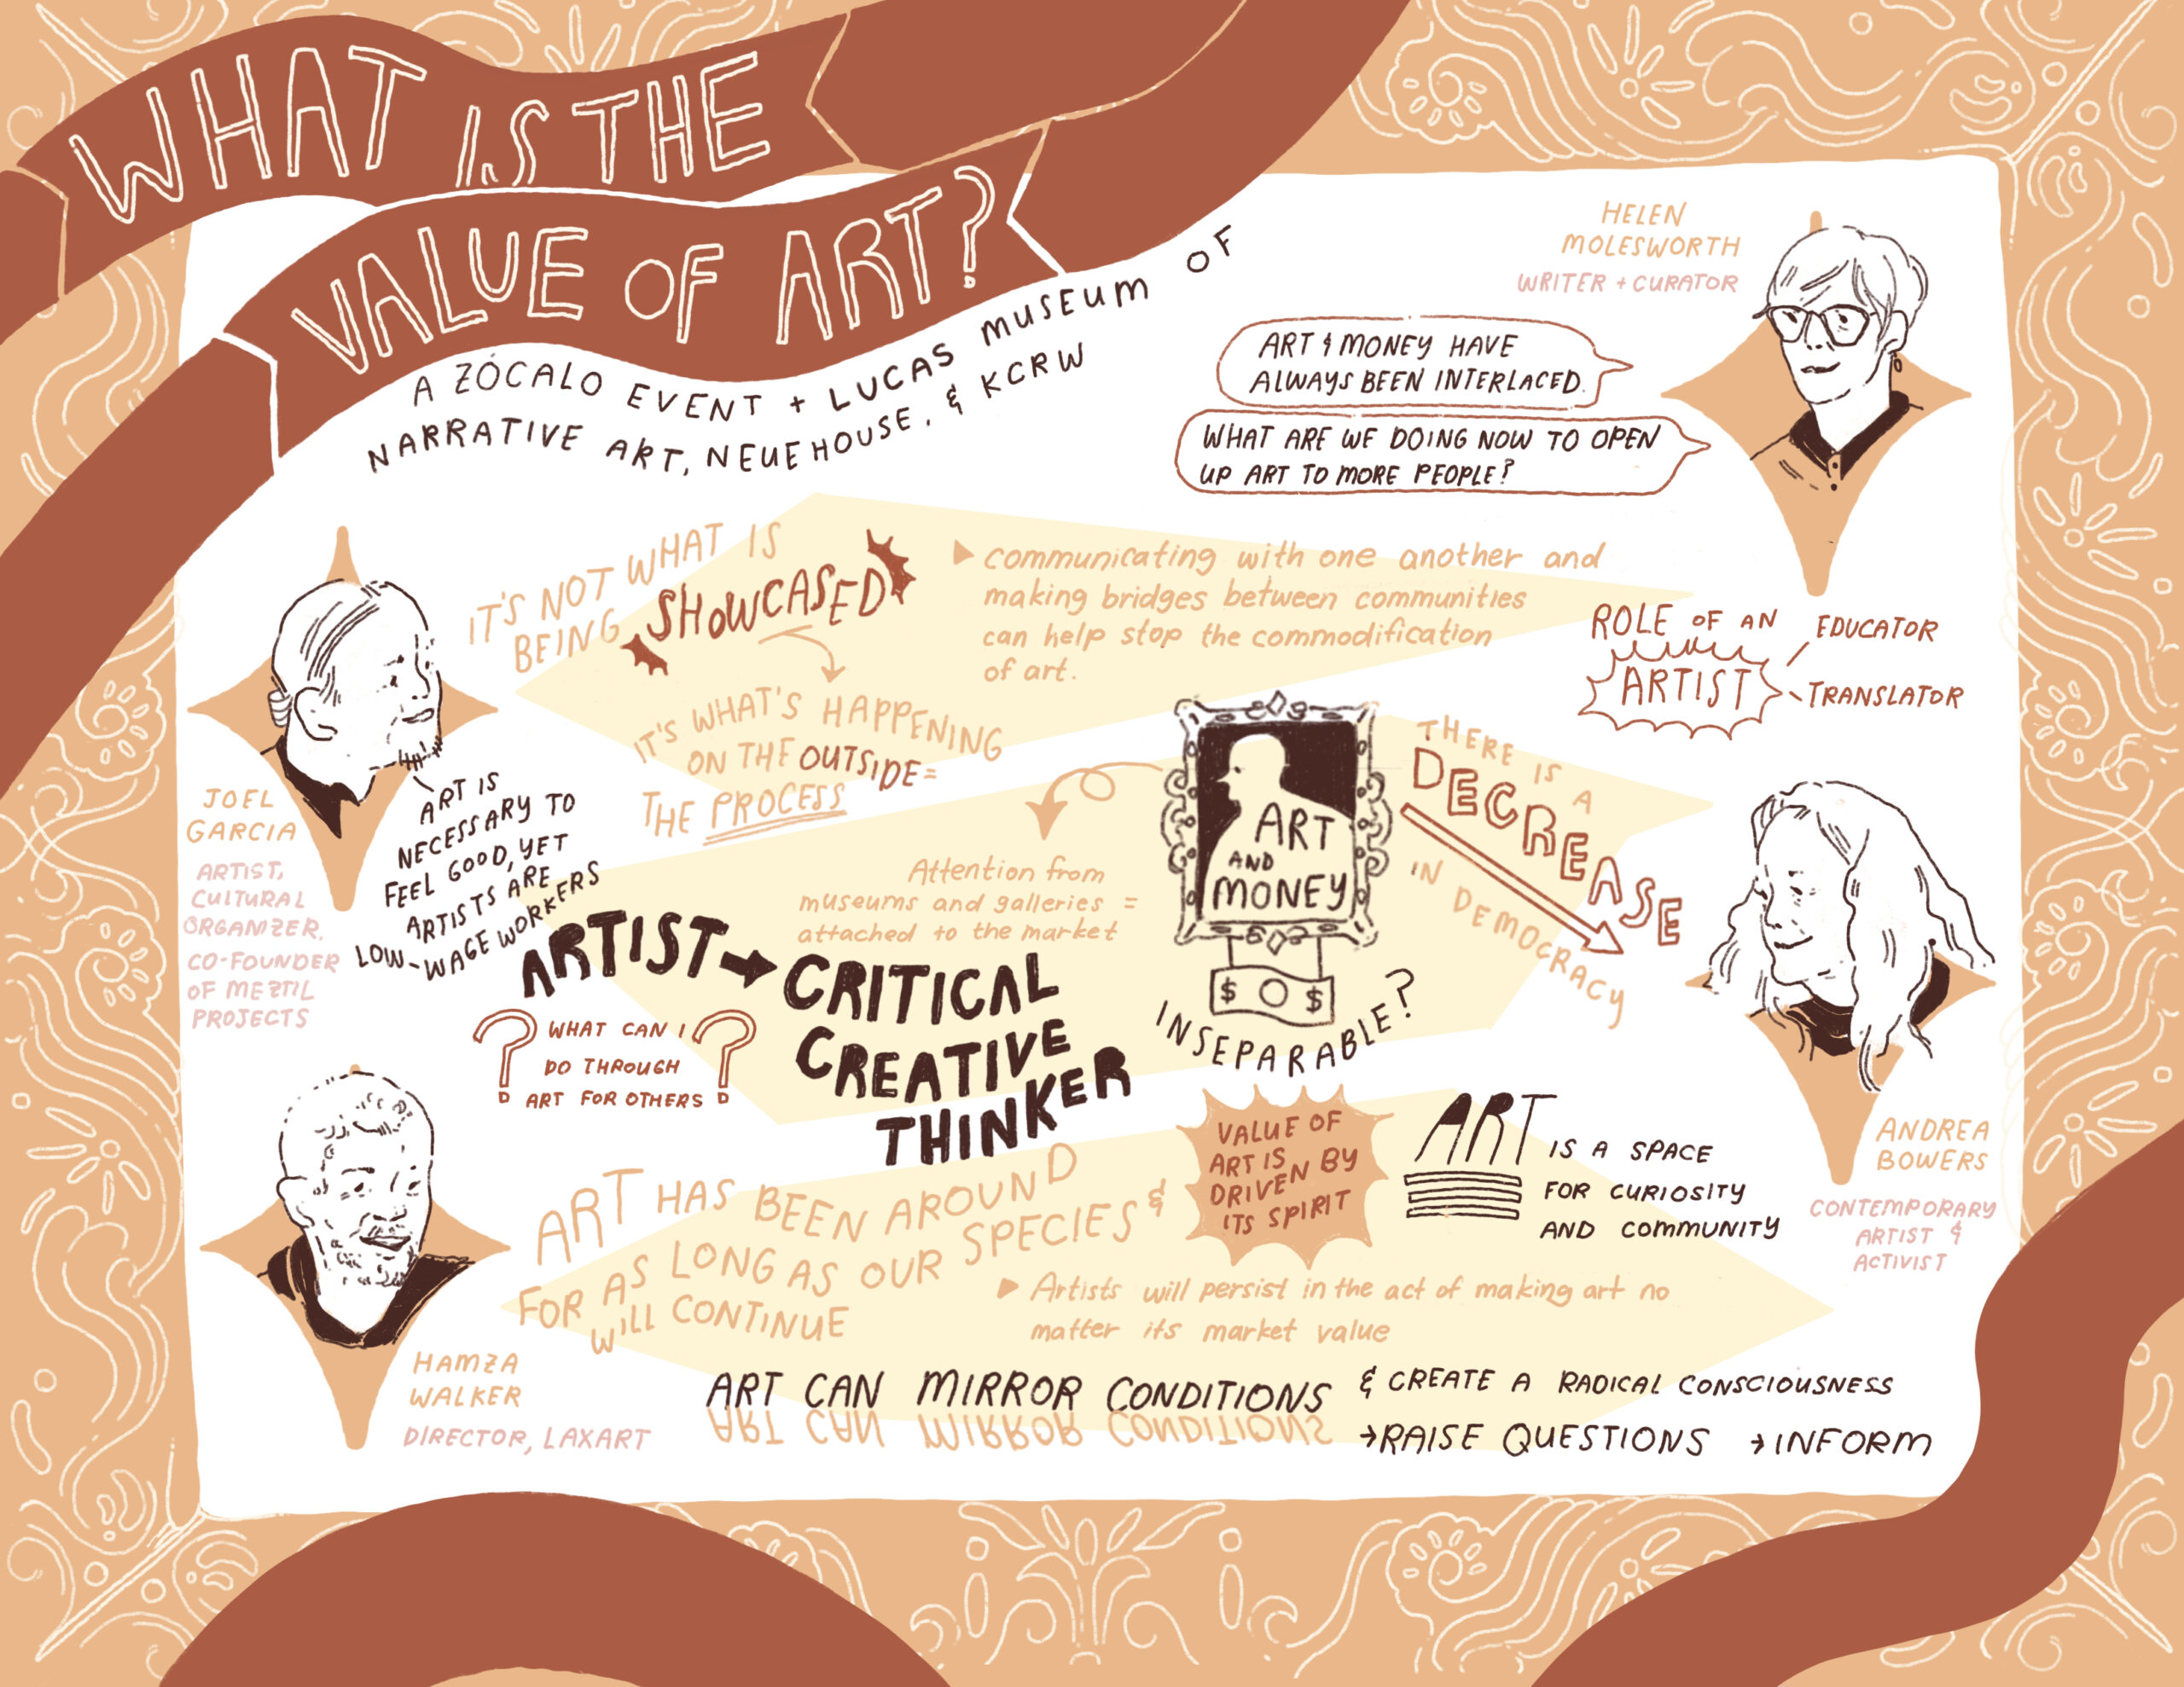 WHAT IS THE
VALUE OF ART?
A ZÓCALO EVENT + LUCAS MUSEUM OF
NARRATIVE ART, NEUEHOUSE, & KCRW
HELEN
MOLESWORTH
WRITER + CURATOR
ART & MONEY HAVE
ALWAYS BEEN INTERLACED.
WHAT ARE WE DOING NOW TO OPEN
UP ART TO MORE PEOPLE?
IT'S NOT WHAT IS
BEING SHOWCASED
IT'S WHAT'S HAPPENING
ON THE OUTSIDE=
THE PROCESS
communicating with one another and
making bridges between communities
can help stop the commodification
of art.
ROLE OF AN
ARTIST
EDUCATOR
TRANSLATOR
JOEL
GARCIA
ARTIST,
CULTURAL
ORGANIZER.
CO-FOUNDER
OF MEZTLI
PROJECTS
ART IS
NECESSARY TO
FEEL GOOD, YET
ARTISTS ARE
LOW-WAGE WORKERS
Attention from
museums and galleries =
attached to the market
ART
AND
MONEY
$ $
INSEPARABLE?
THERE IS A
DECREASE
IN DEMOCRACY
ARTIST → CRITICAL
CREATIVE
THINKER
? WHAT CAN I ?
DO THROUGH
ART FOR OTHERS
VALUE OF
ART IS
DRIVEN BY
ITS SPIRIT
ART IS A SPACE
FOR CURIOSITY
AND COMMUNITY
ANDREA
BOWERS
CONTEMPORARY
ARTIST &
ACTIVIST
ART HAS BEEN AROUND
FOR AS LONG AS OUR SPECIES &
WILL CONTINUE
Artists will persist in the act of making art no
matter its market value
HAMZA
WALKER
DIRECTOR, LAXART
ART CAN MIRROR CONDITIONS
ART CAN MIRROR CONDITIONS
& CREATE A RADICAL CONSCIOUSNESS
→RAISE QUESTIONS →INFORM